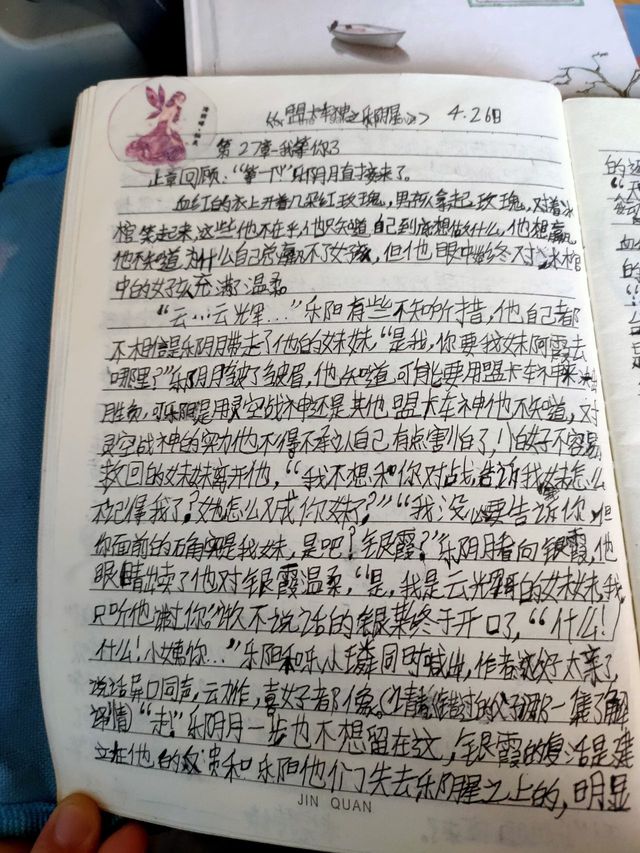 《盟卡车神之乐阴星》 4.26日
第27章-我等你了
上章回顾："第一下"乐阴月直接来了。
血红的衣上开着几朵红玫瑰，男孩拿起玫瑰，对着冰
棺笑起来，这些他不在乎，他只知道自己到底想做什么，他想赢，
他不知道为什么自己总赢不了女孩，但他眼中始终对冰棺
中的女孩充满了温柔。
"云…云光辉…"乐阳有些不知所措，他自己都
不相信是乐阴月带走了他的妹妹，"是我，你要我妹阿霞去
哪里？"乐阴月皱了皱眉，他知道，可能要用盟卡车神来决
胜负，可乐阳是用灵空战神还是其他盟卡车神他不知道，对
灵空战神的实力他不得不承认自己有点害怕了，好不容易
救回的妹妹离开他，"我不想和你对战，告诉我妹怎么
不记得我了？她怎么又成你妹了？""我没必要告诉你，但
你面前的的确实是我妹，是吧？银霞？"乐阴月看向银霞，他
眼睛出卖了他对银霞温柔，"是，我是云光辉哥的妹妹，我
只听他说过你。"许久不说话的银霞终于开口了，"什么！
什么！小姨你…"乐阳和 同时喊出，作者
说话异口同声，云力作，喜好都像。(请看 的父子那一集了解
详情)"走"乐阴月一步也不想留在这，银霞的复活是建
立在他的 和乐阳他们失去乐阴星之上的，明显
JIN QUAN